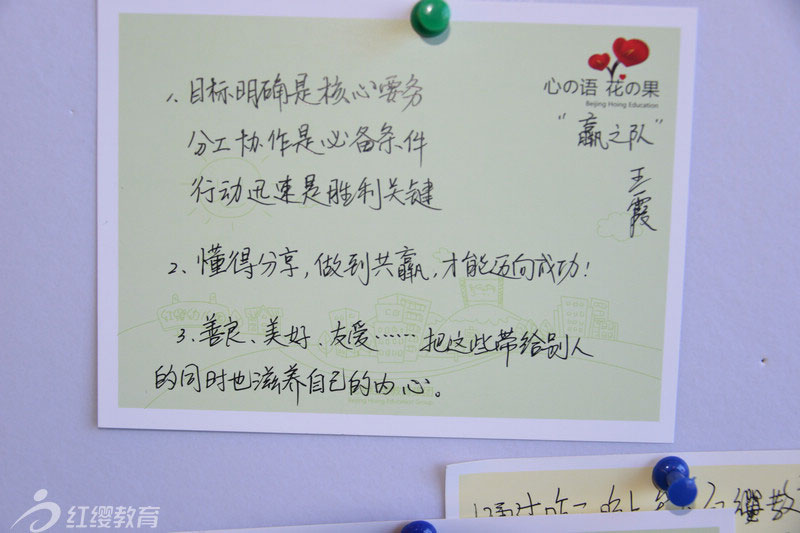 心の语 花の果
Beijing Hoing Education
"赢之队"
王霞
1、目标明确是核心要务
分工协作是必备条件
行动迅速是胜利关键
2、懂得分享,做到共赢,才能迈向成功!
3、善良、美好、友爱……把这些带给别人
的同时也滋养自己的内心。
红缨教育